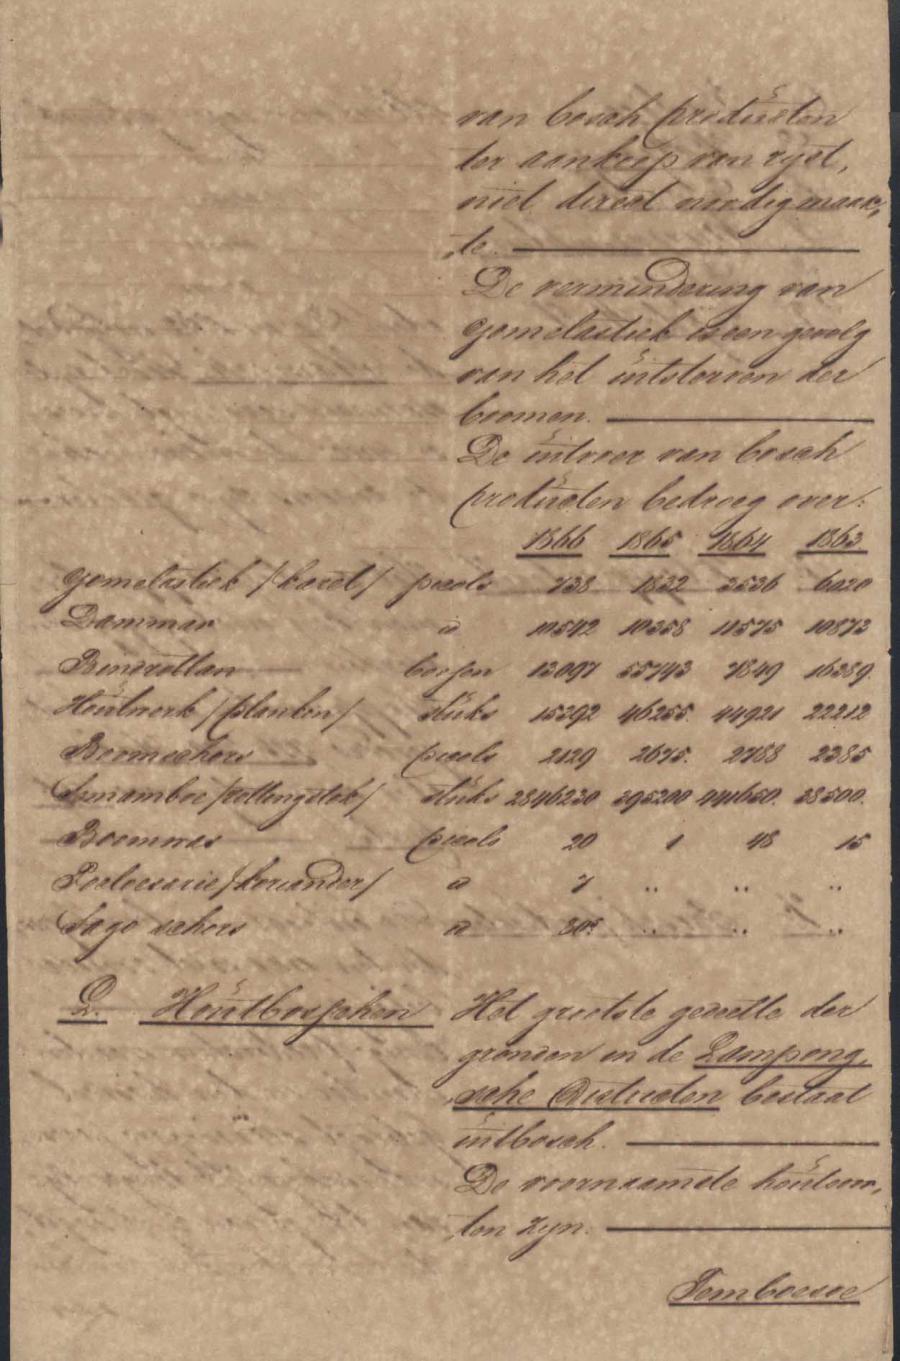 van bosch producten
ter aankoop van rijst,
niet direct noodig maak,
„te.
De vermindering van
gomelastiek is een gevolg
van het uitsterven der
boomen.
De uitvoer van bosch
producten bedroeg over:
1866 1865 1864 1863
Gomelastiek /karet/ picols 738 1832 3536 6020
Dammar " 10542 10358 11575 10873
Bindrottan bossen 13097 55743 7849 16389.
Houtwerk /planken/ stuks 15392 46255. 44921 22212
Boomschors picols 2129 2675. 2788 2385
Semamboe /rottingstok/ stuks 2846230 395200 441650. 38500.
Boomwas picols 20 1 48 15
Poeloesarie /koriander/ " 7 " " "
Sago schors " 305 " " "
D. Houtbosschen
Het grootste gedeelte der
gronden in de Lampong,
„sche Districten bestaat
uit bosch.
De voornaamste houtsoor,
„ten zijn.
Temboesoe